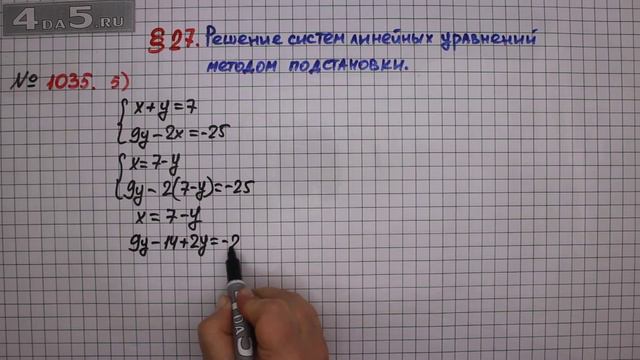 4DA5.RU
§27. Решение систем линейных уравнений
методом подстановки.
№ 1035. 5)
x+y=7
9y-2x=-25
x=7-y
9y-2(7-y)=-25
x=7-y
9y-14+2y=-2